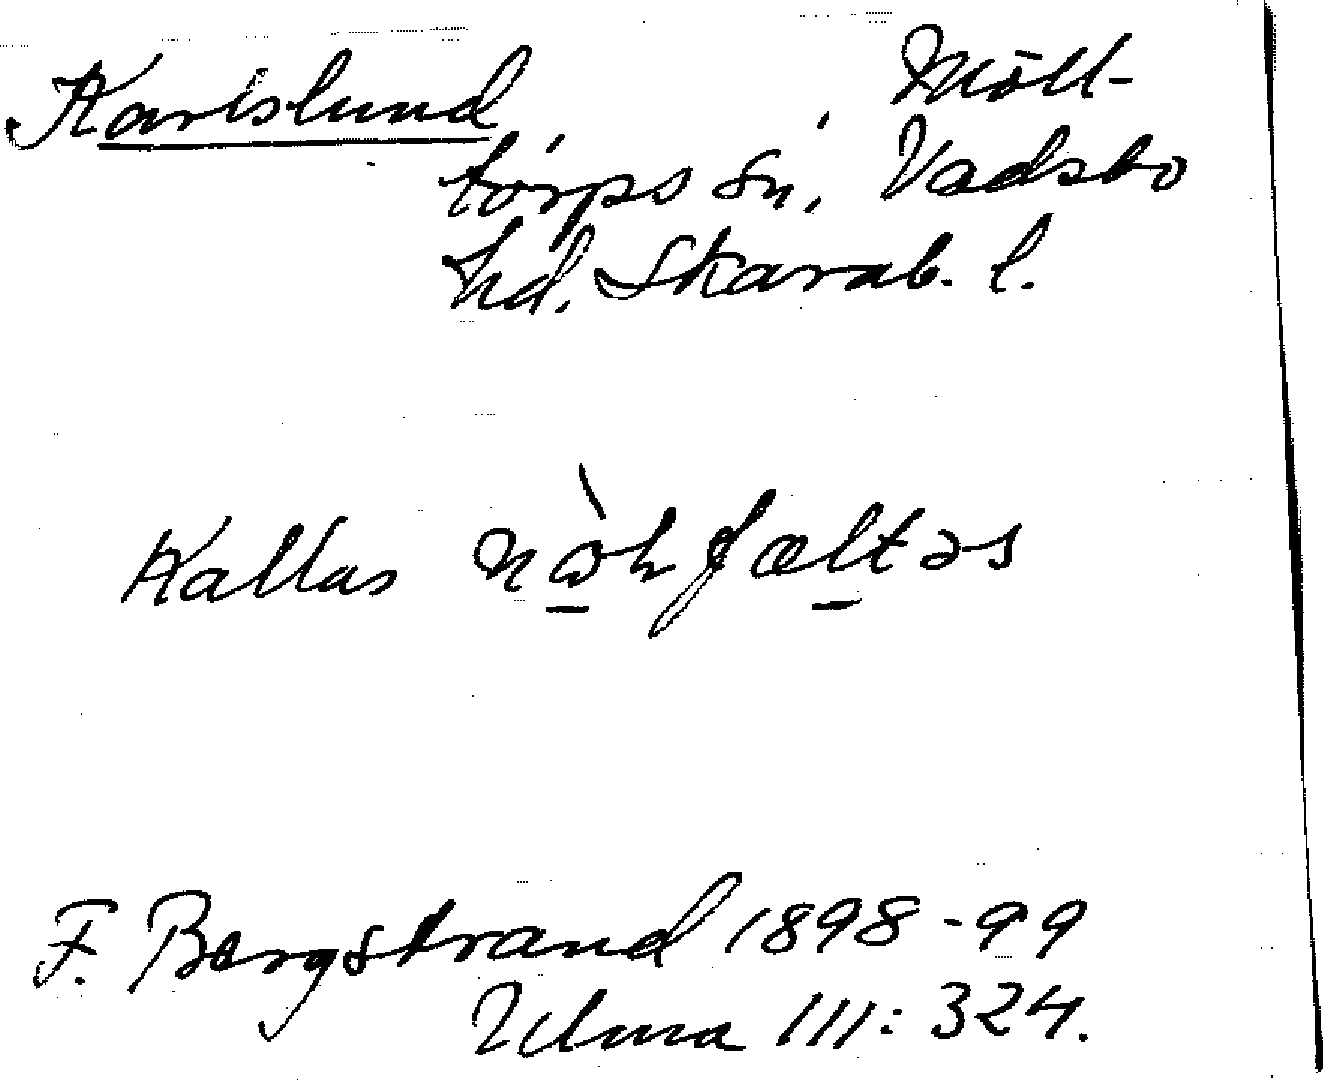 Karlslund, Möll-
torps sn, Vadsbo
hd. Skarab. l.
Kallas nɷ̀hfæltəs
F. Bergstrand 1898-99
Ulma 111: 324.